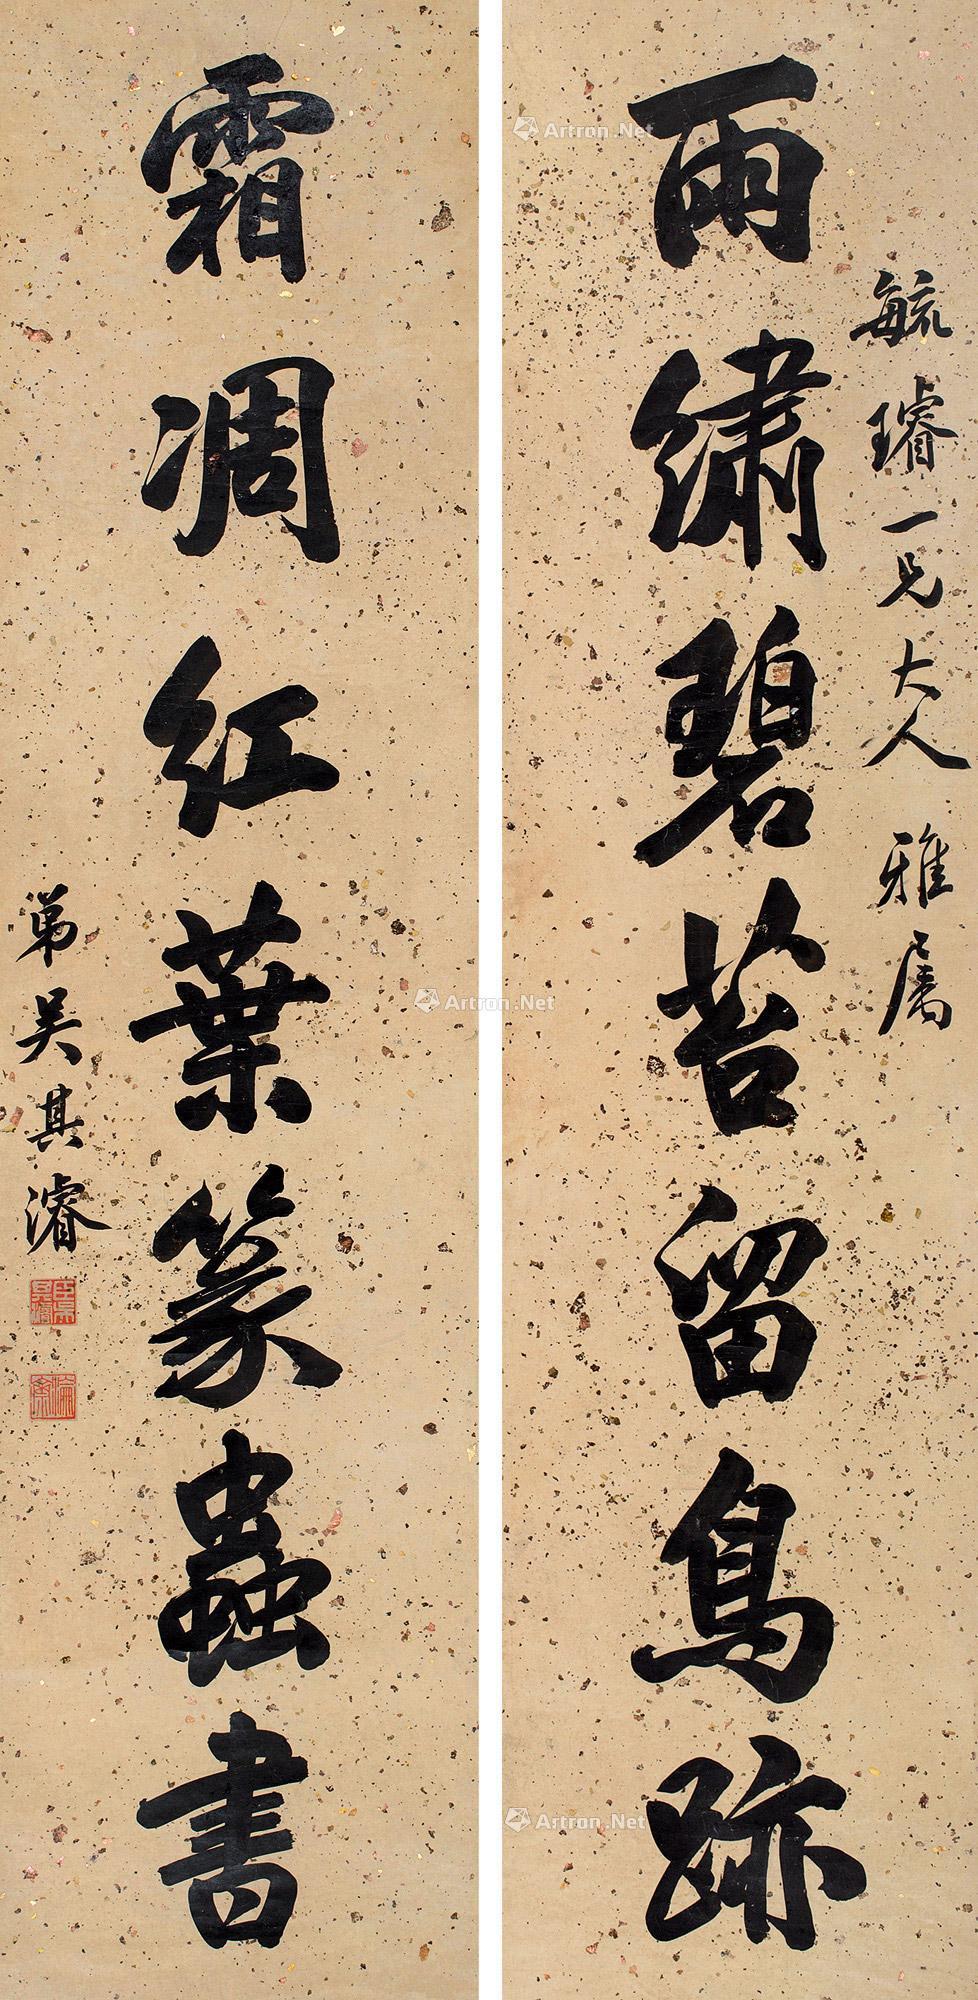 毓璿一兄大人雅属
雨繡碧苔留鳥跡
霜凋紅葉篆蟲書
弟吳其濬
Artron.Net
Artron.Net
Artron.Net